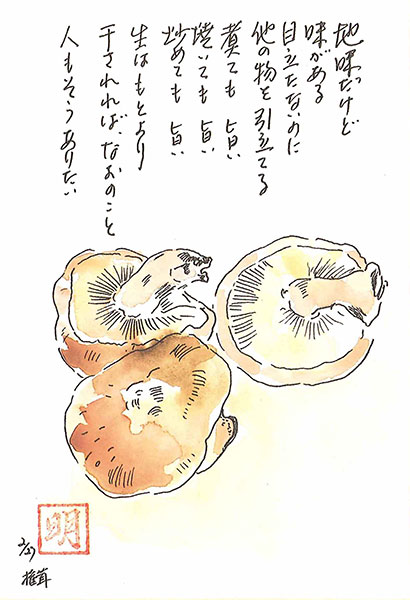 地味だけど
味がある
目立たないのに
他の物を引立てる
煮ても 旨い
焼いても 旨い
炒めても 旨い
生はもとより
干されれば、なおのこと
人もそうありたい
明
2/27
椎茸